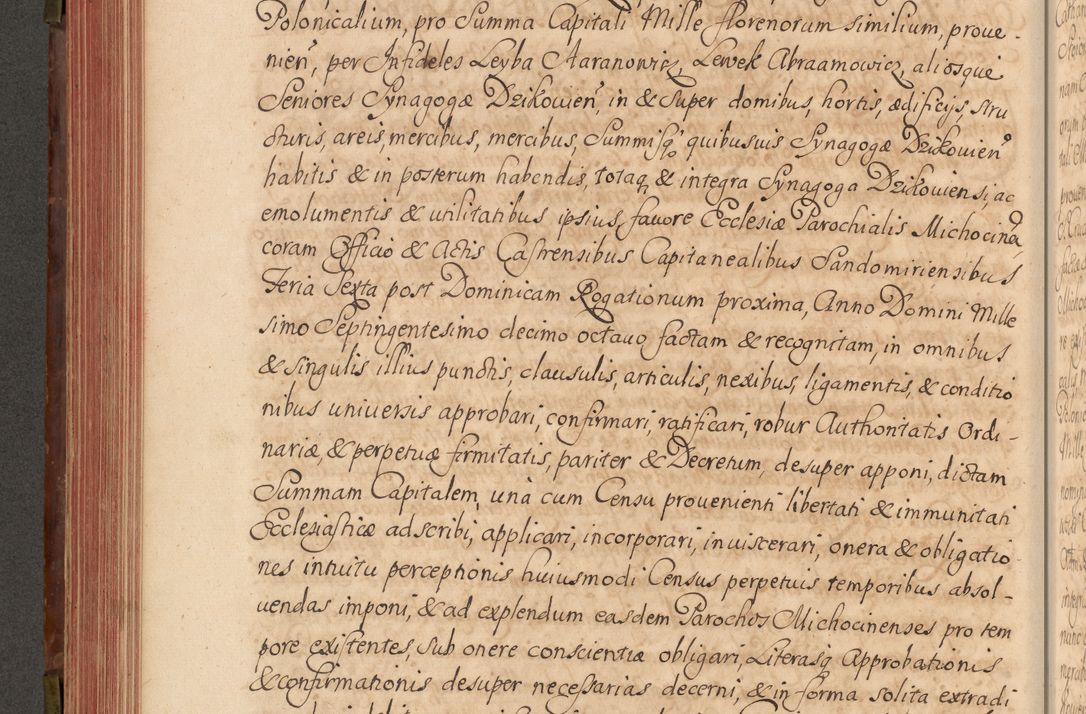 Polonicalium, pro Summa Capitali Mille florenorum similium, prove-
nień, per Infideles Leyba Staranowicz, Lewek Abraamowicz, aliosque
Seniores Synagogæ Dzikovień, in & super domibus, hortis, ædificijs, stru
cturis, areis, mercibus, mercibus, Summisq; quibusuis Synagogæ Dzikovień
habitis & in posterum habendis, totaq; & integra Synagoga Dzikoviensi, ac
emolumentis & utilitatibus ipsius, favore Ecclesiæ Parochialis Michocineń
coram Officio & Actis Castrensibus Capitanealibus Sandomiriensibus
Feria Sexta post Dominicam Rogationum proxima, Anno Domini Mille
simo Septingentesimo decimo octavo factam & recognitam, in omnibus
& singulis illius punctis, clausulis, articulis, nexibus, ligamentis, & conditio
nibus universis approbari, confirmari, ratificari, robur Authoritatis Ordi-
nariæ, & perpetuæ firmitatis, pariter & Decretum, desuper apponi, dictam
Summam Capitalem, unà cum Censu provenienti libertati & immunitati
Ecclesiasticæ adscribi, applicari, incorporari, inviscerari, onera & obligatio-
nes intuitu perceptionis huiusmodi Census perpetuis temporibus absol-
vendas imponi, & ad explendum easdem Parochos Michocinenses pro tem
pore existentes, sub onere conscientiæ obligari, Literasq; Approbationis
& confirmationis desuper necessarias decerni, & in forma solita extradi